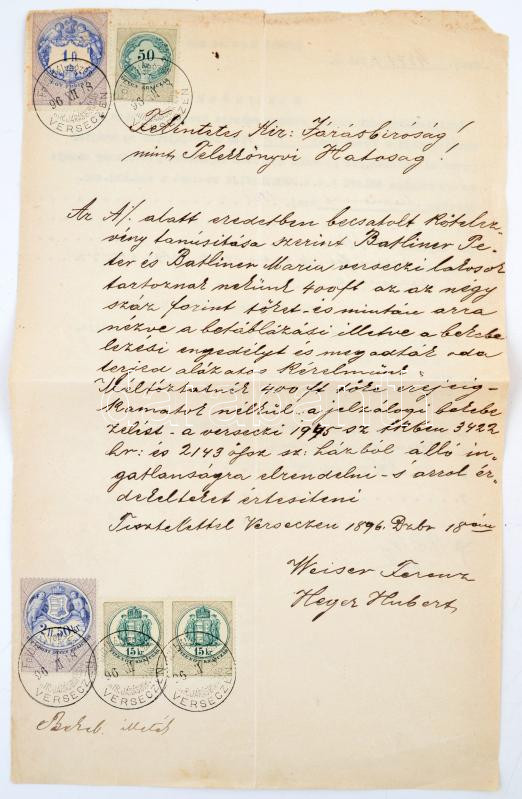 1 ft
50
kr.
96 XII 18
VERSECZEN
96 XII
VERSECZEN
Tekintetes Kir: Járásbiróság!
mint Telekkönyvi Hatoság!
Az A/. alatt eredetben becsatolt kötelez-
vény tanúsitása szerint Batliner Pe-
ter és Batliner Maria verseczi lakosok
tartoznak nekünk 400 ft az az négy
száz forint tőket és miután arra
nézve a betáblázási illetve a bekebe-
lezési engedélyt és megadták oda
terjed alázatos kérelmünk
Méltóztatnék 400 ft tőke erejéig
kamatok nélkül a jelzálogi bekebe
lezést a verseczi 1995 sz tkben 3422
hr: és 2143 öfsz sz: házból álló in-
gatlanságra elrendelni s arrol ér-
dekelteket értesiteni
Tisztelettel Verseczen 1896 Dzbr 18 án
Weiser Ferenz
Heger Hubert
2 ft 50 kr
15 kr.
15 kr.
96 XII 8
VERSECZEN
96 XII
VERSECZEN
96
VERSECZEN
Bekeb. illeték